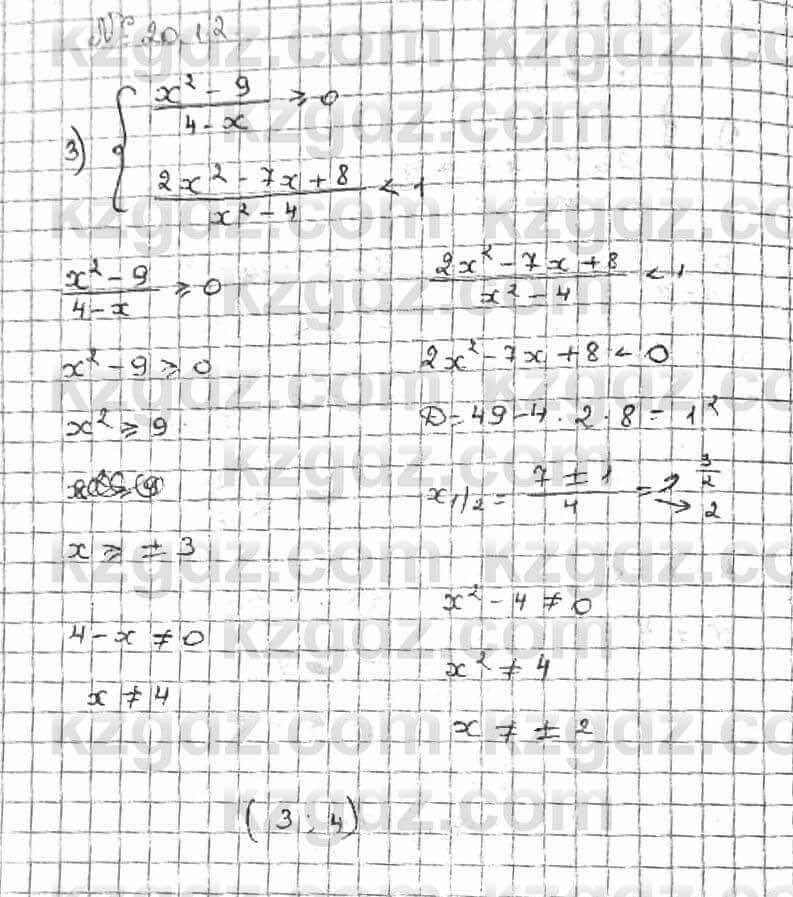 № 20.12
3) { (x² - 9)/(4 - x) ≥ 0
(2x² - 7x + 8)/(x² - 4) < 1
(x² - 9)/(4 - x) ≥ 0
x² - 9 ≥ 0
x² ≥ 9
x ≥ ± 3
4 - x ≠ 0
x ≠ 4
(2x² - 7x + 8)/(x² - 4) < 1
2x² - 7x + 8 < 0
D = 49 - 4 · 2 · 8 = 1²
x₁/₂ = (7 ± 1)/4 = 3/2 → 2
x² - 4 ≠ 0
x² ≠ 4
x ≠ ± 2
(3; 4)
kzgdz.com